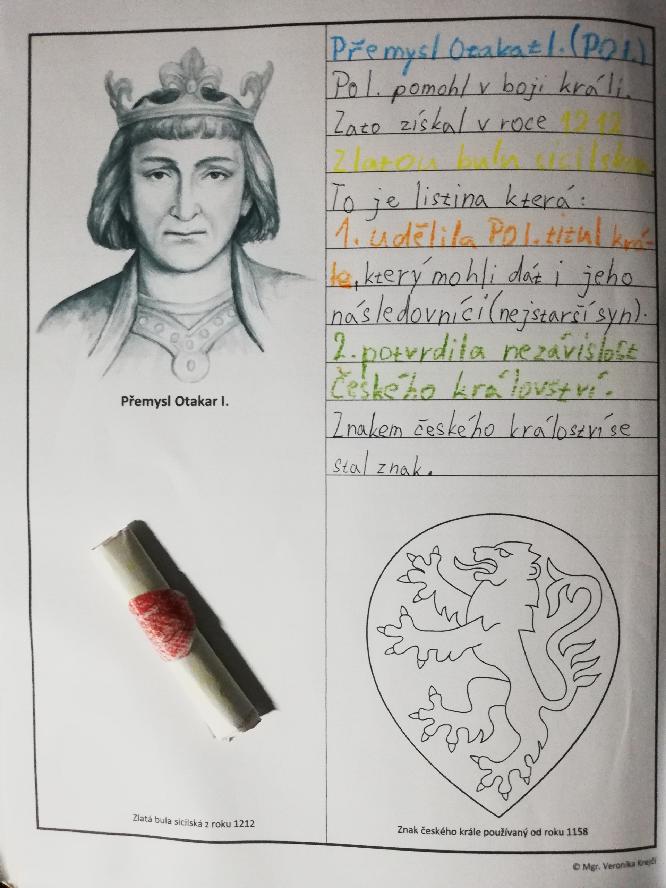 Přemysl Otakar I. (POI.)
Pol. pomohl v boji králi.
Zato získal v roce 1212
Zlatou bulu sicilskou.
To je listina která:
1. udělila POI. titul krá-
le, který mohli dát i jeho
následovníci (nejstarší syn).
2. potvrdila nezávislost
Českého království.
Znakem českého králoství se
stal znak.
Přemysl Otakar I.
Zlatá bula sicilská z roku 1212
Znak českého krále používaný od roku 1158
© Mgr. Veronika Krejčí